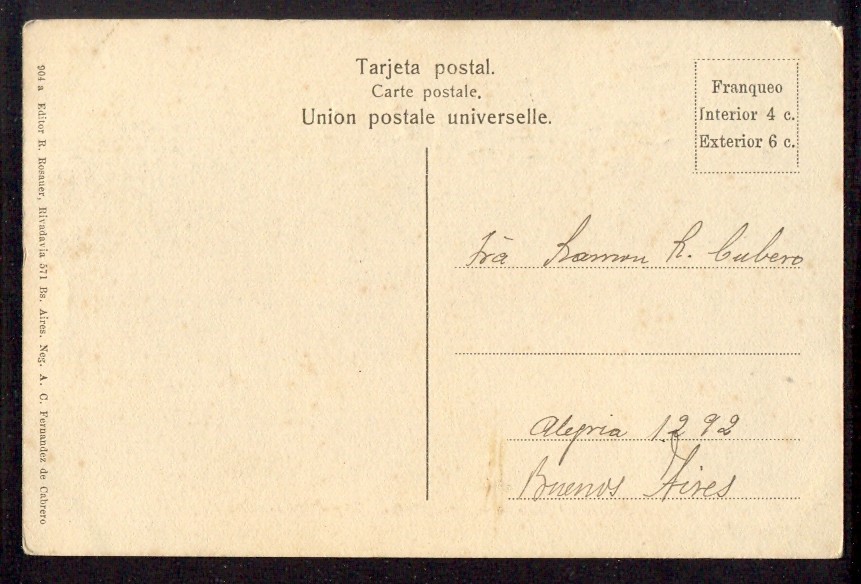 Tarjeta postal.
Carte postale.
Union postale universelle.
Franqueo
Interior 4 c.
Exterior 6 c.
904 a Editor R. Rosauer, Rivadavia 571 Bs. Aires. Neg. A. C. Fernandez de Cabrero
Ramon R. Cubero
Alegria 1292
Buenos Aires